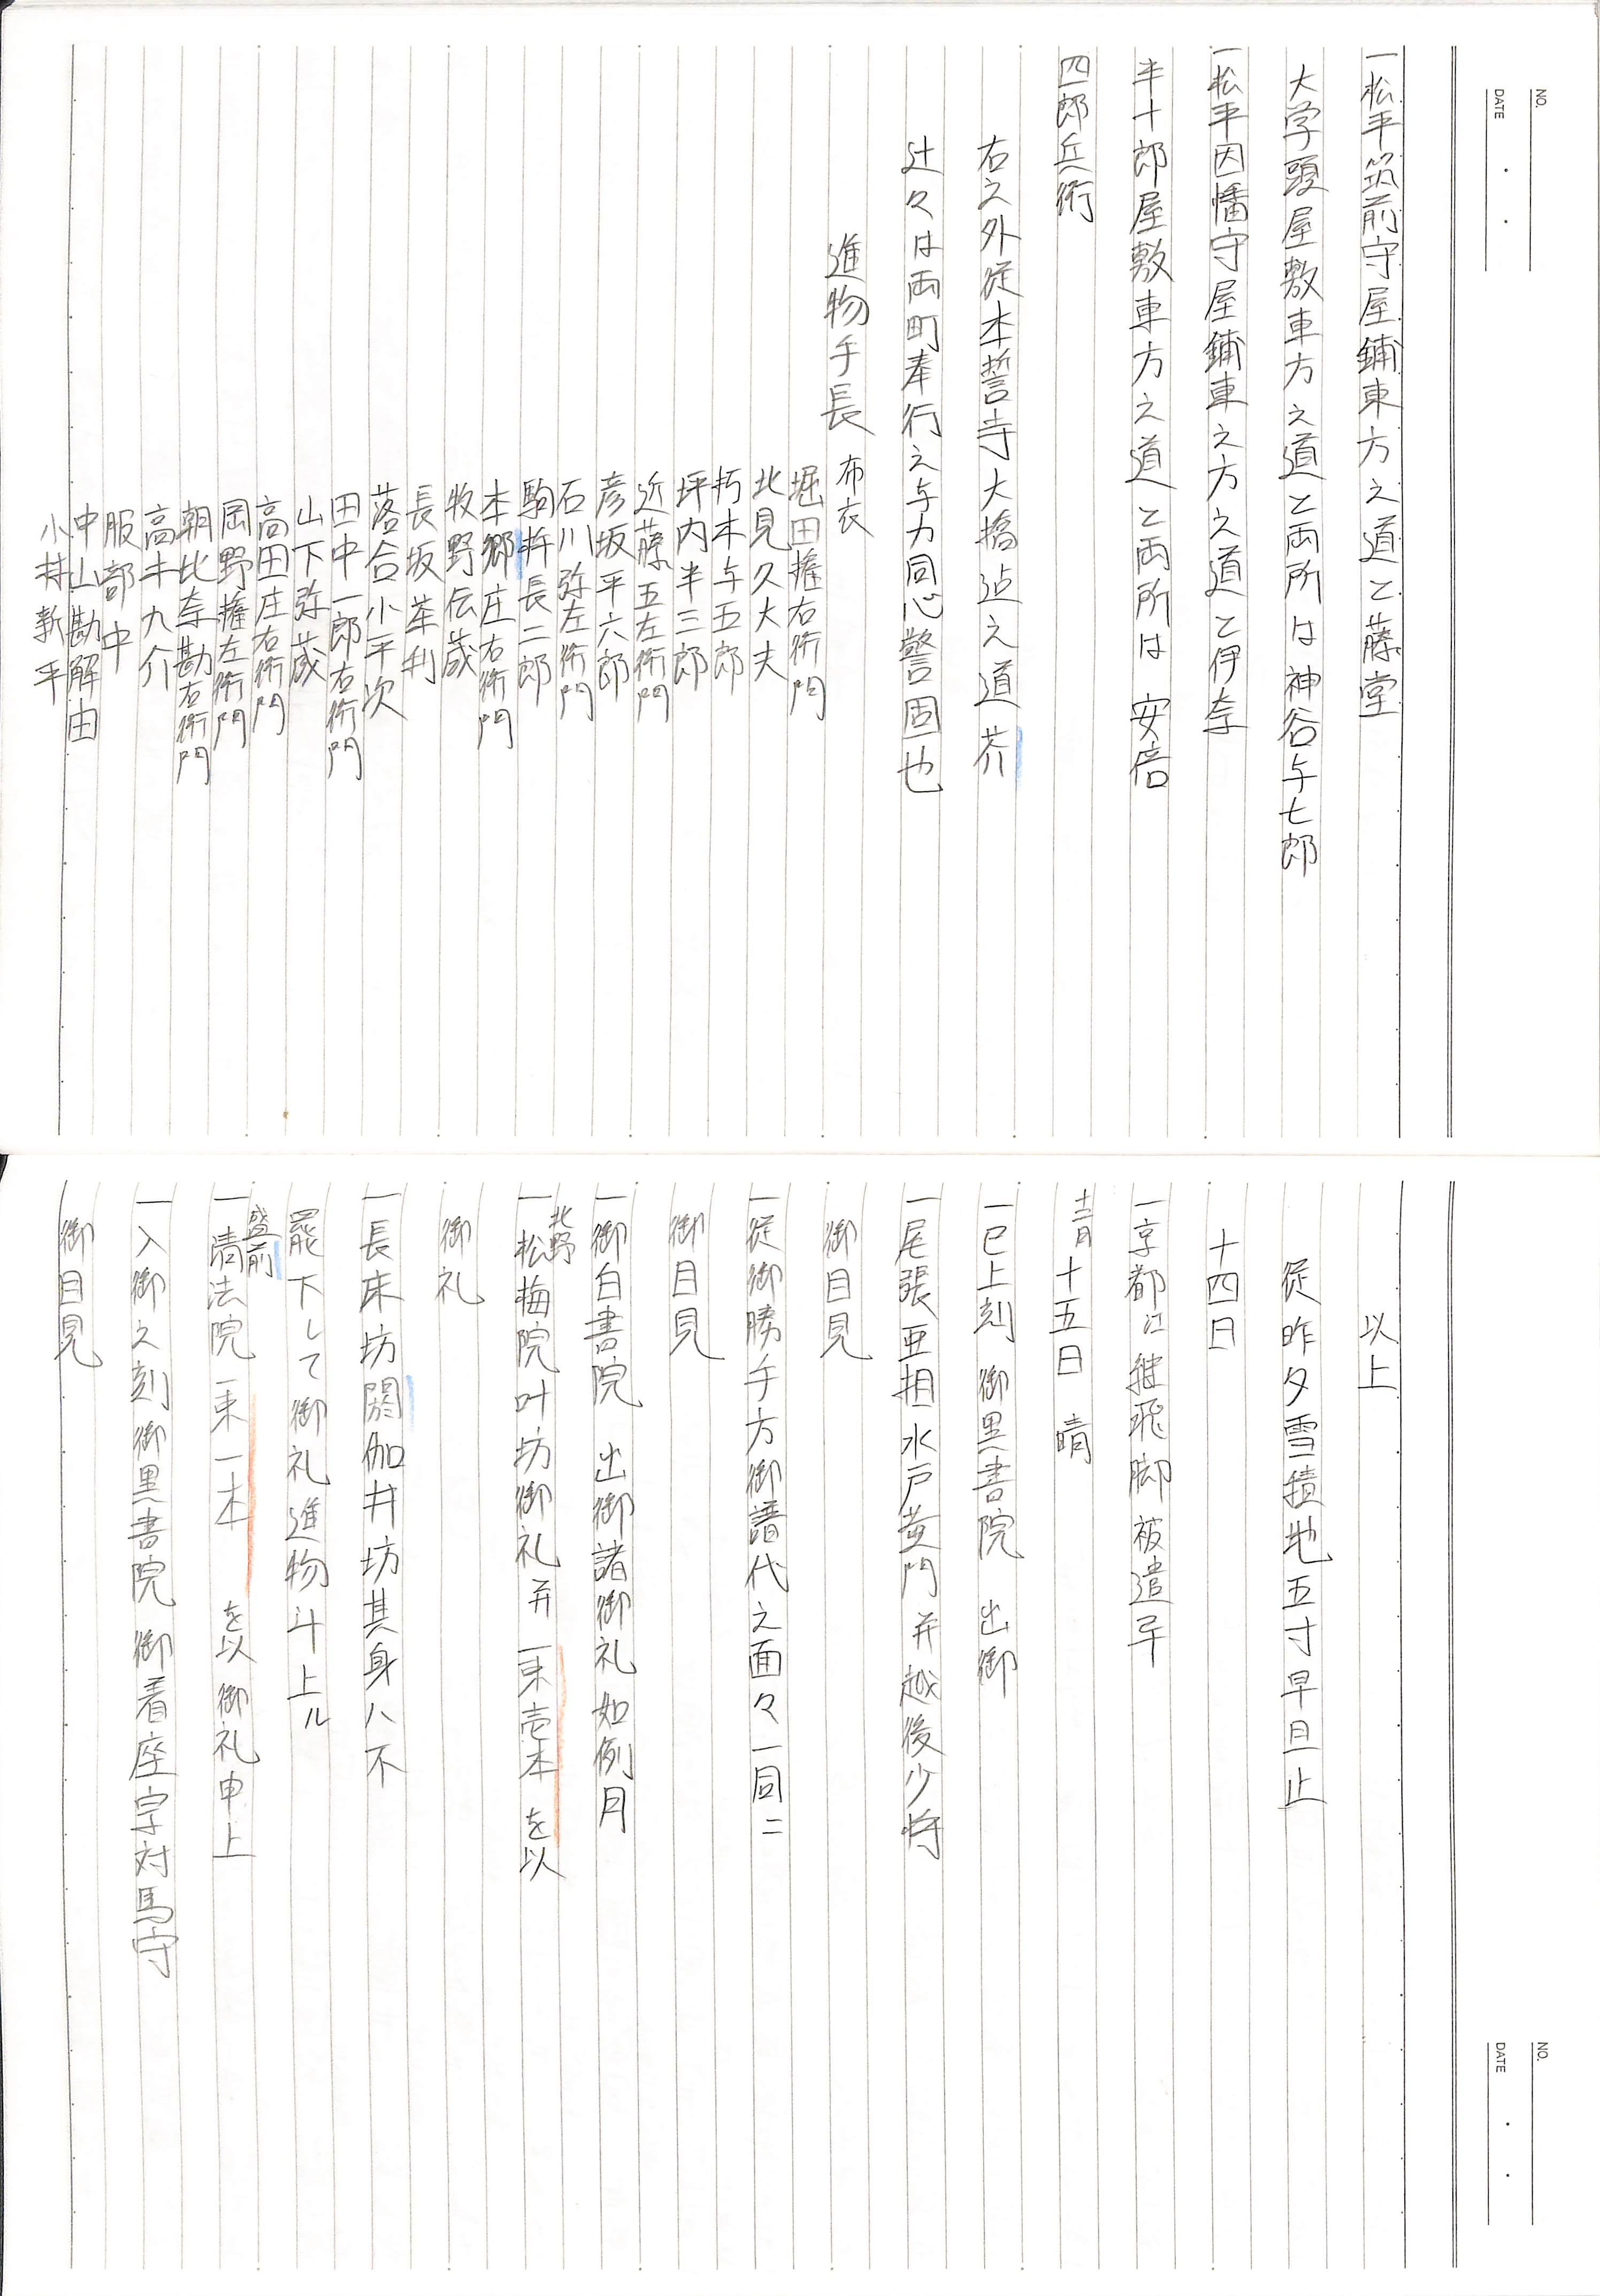 NO.
DATE
一松平筑前守屋鋪東方之道と藤堂
大学頭屋敷車方之道と両所は神谷与七郎
一松平因幡守屋鋪車之方之道と伊奈
半十郎屋敷車方之道と両所は安倍
四郎兵衛
右之外従本誓寺大橋迠之道芥
辻々は両町奉行之与力同心警固也
進物手長 布衣
堀田権右衛門
北見久大夫
朽木与五郎
坪内半三郎
近藤五左衛門
彦坂平六郎
石川弥左衛門
駒井長二郎
本郷庄右衛門
牧野伝蔵
長坂茶利
落合小平次
田中一郎右衛門
山下弥蔵
高田庄右衛門
岡野権左衛門
朝比奈勘右衛門
高木九介
服部中
中山勘解由
小林新平
NO.
DATE
以上
従昨夕雪積地五寸早旦止
十四日
一京都江継飛脚被遣乎
十二月十五日 晴
一巳上刻 御黒書院 出御
一尾張亜相水戸黄門并越後少将
御目見
一従御勝手方御譜代之面々一同ニ
御目見
一御白書院 出御諸御礼如例月
北野
一松梅院叶坊御礼并一束壱本を以
御礼
一長床坊閼伽井坊其身ハ不
罷下して御礼進物斗上ル
盛前
一清法院一束一本 を以御礼申上
一入御之刻御黒書院御着座宗対馬守
御目見